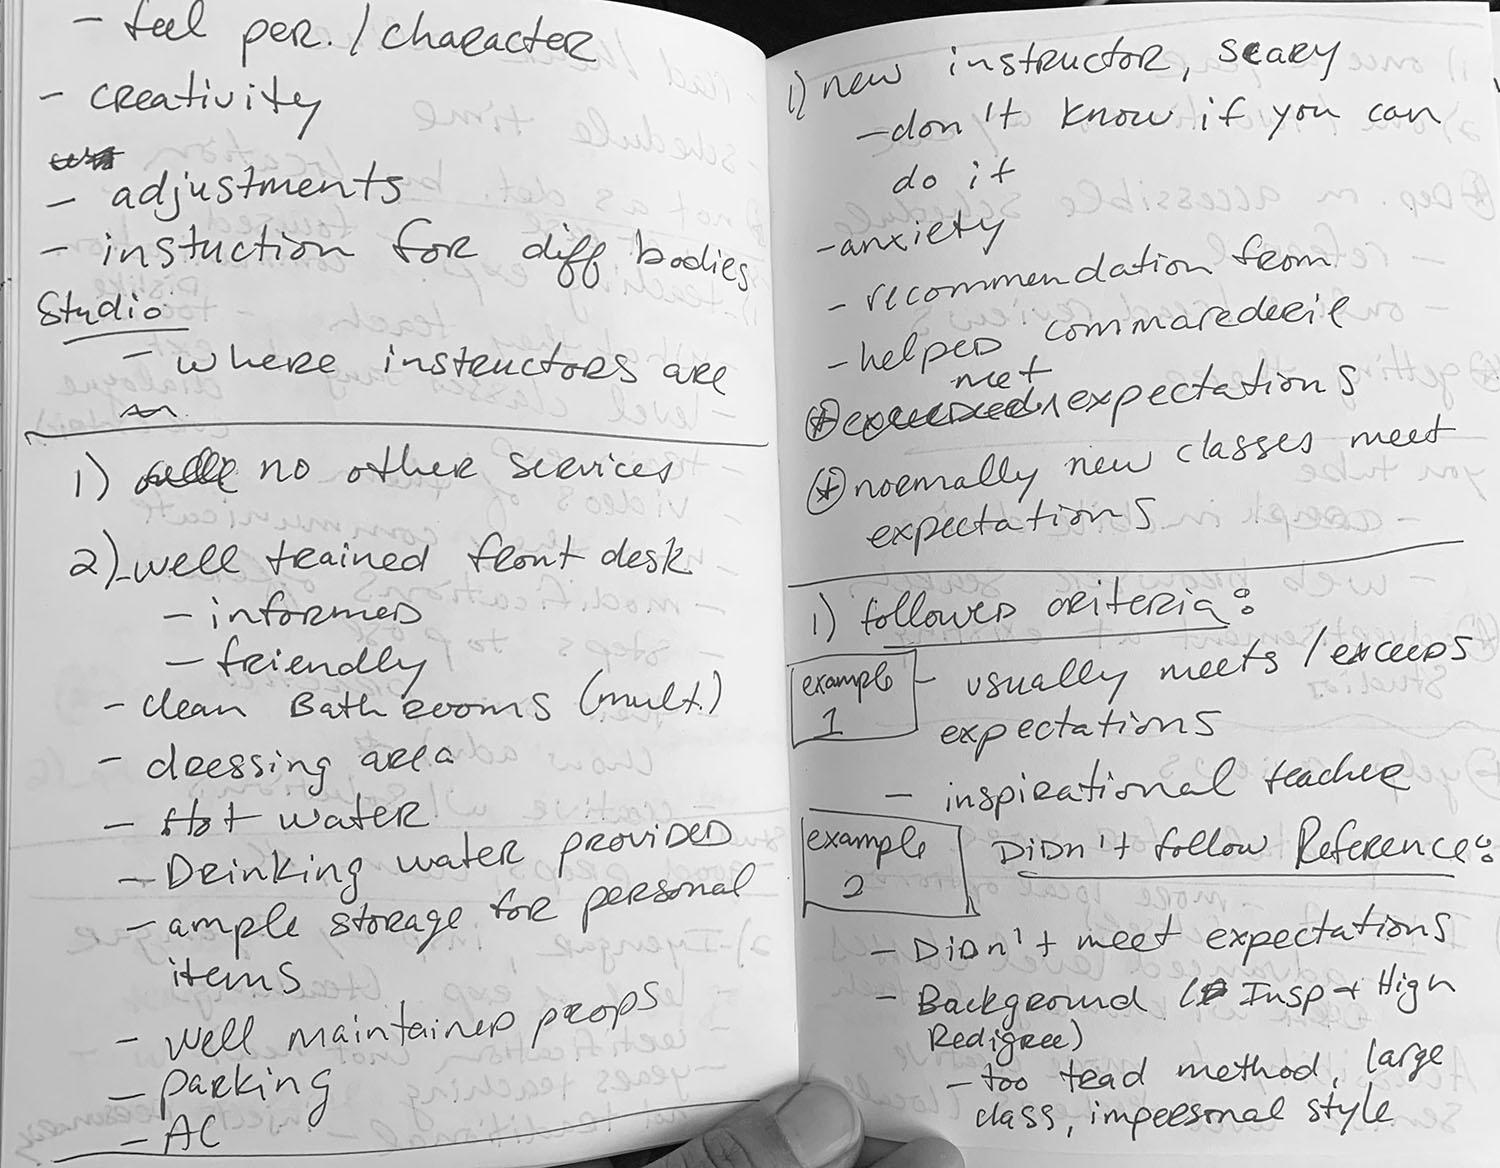 - feel per. / character
- creativity
- adjustments
- instuction for diff bodies
Studio
- where instructors are
1) no other services
2) - well trained front desk
- informed
- friendly
- clean Bathrooms (mult.)
- dressing area
- Hot water
- Drinking water provided
- ample storage for personal
items
- well maintained props
- parking
- AC
1) new instructor, scary
- don't know if you can
do it
- anxiety
- recommendation from
- helped commaraderie
met
+ exceeded ^ expectations
+ normally new classes meet
expectations
1) followed criteria:
example
1
- usually meets / exceeds
expectations
- inspirational teacher
example
2
Didn't follow Reference:
- Didn't meet expectations
- Background ( Insp + High
Pedigree)
- too trad method, large
class, impersonal style